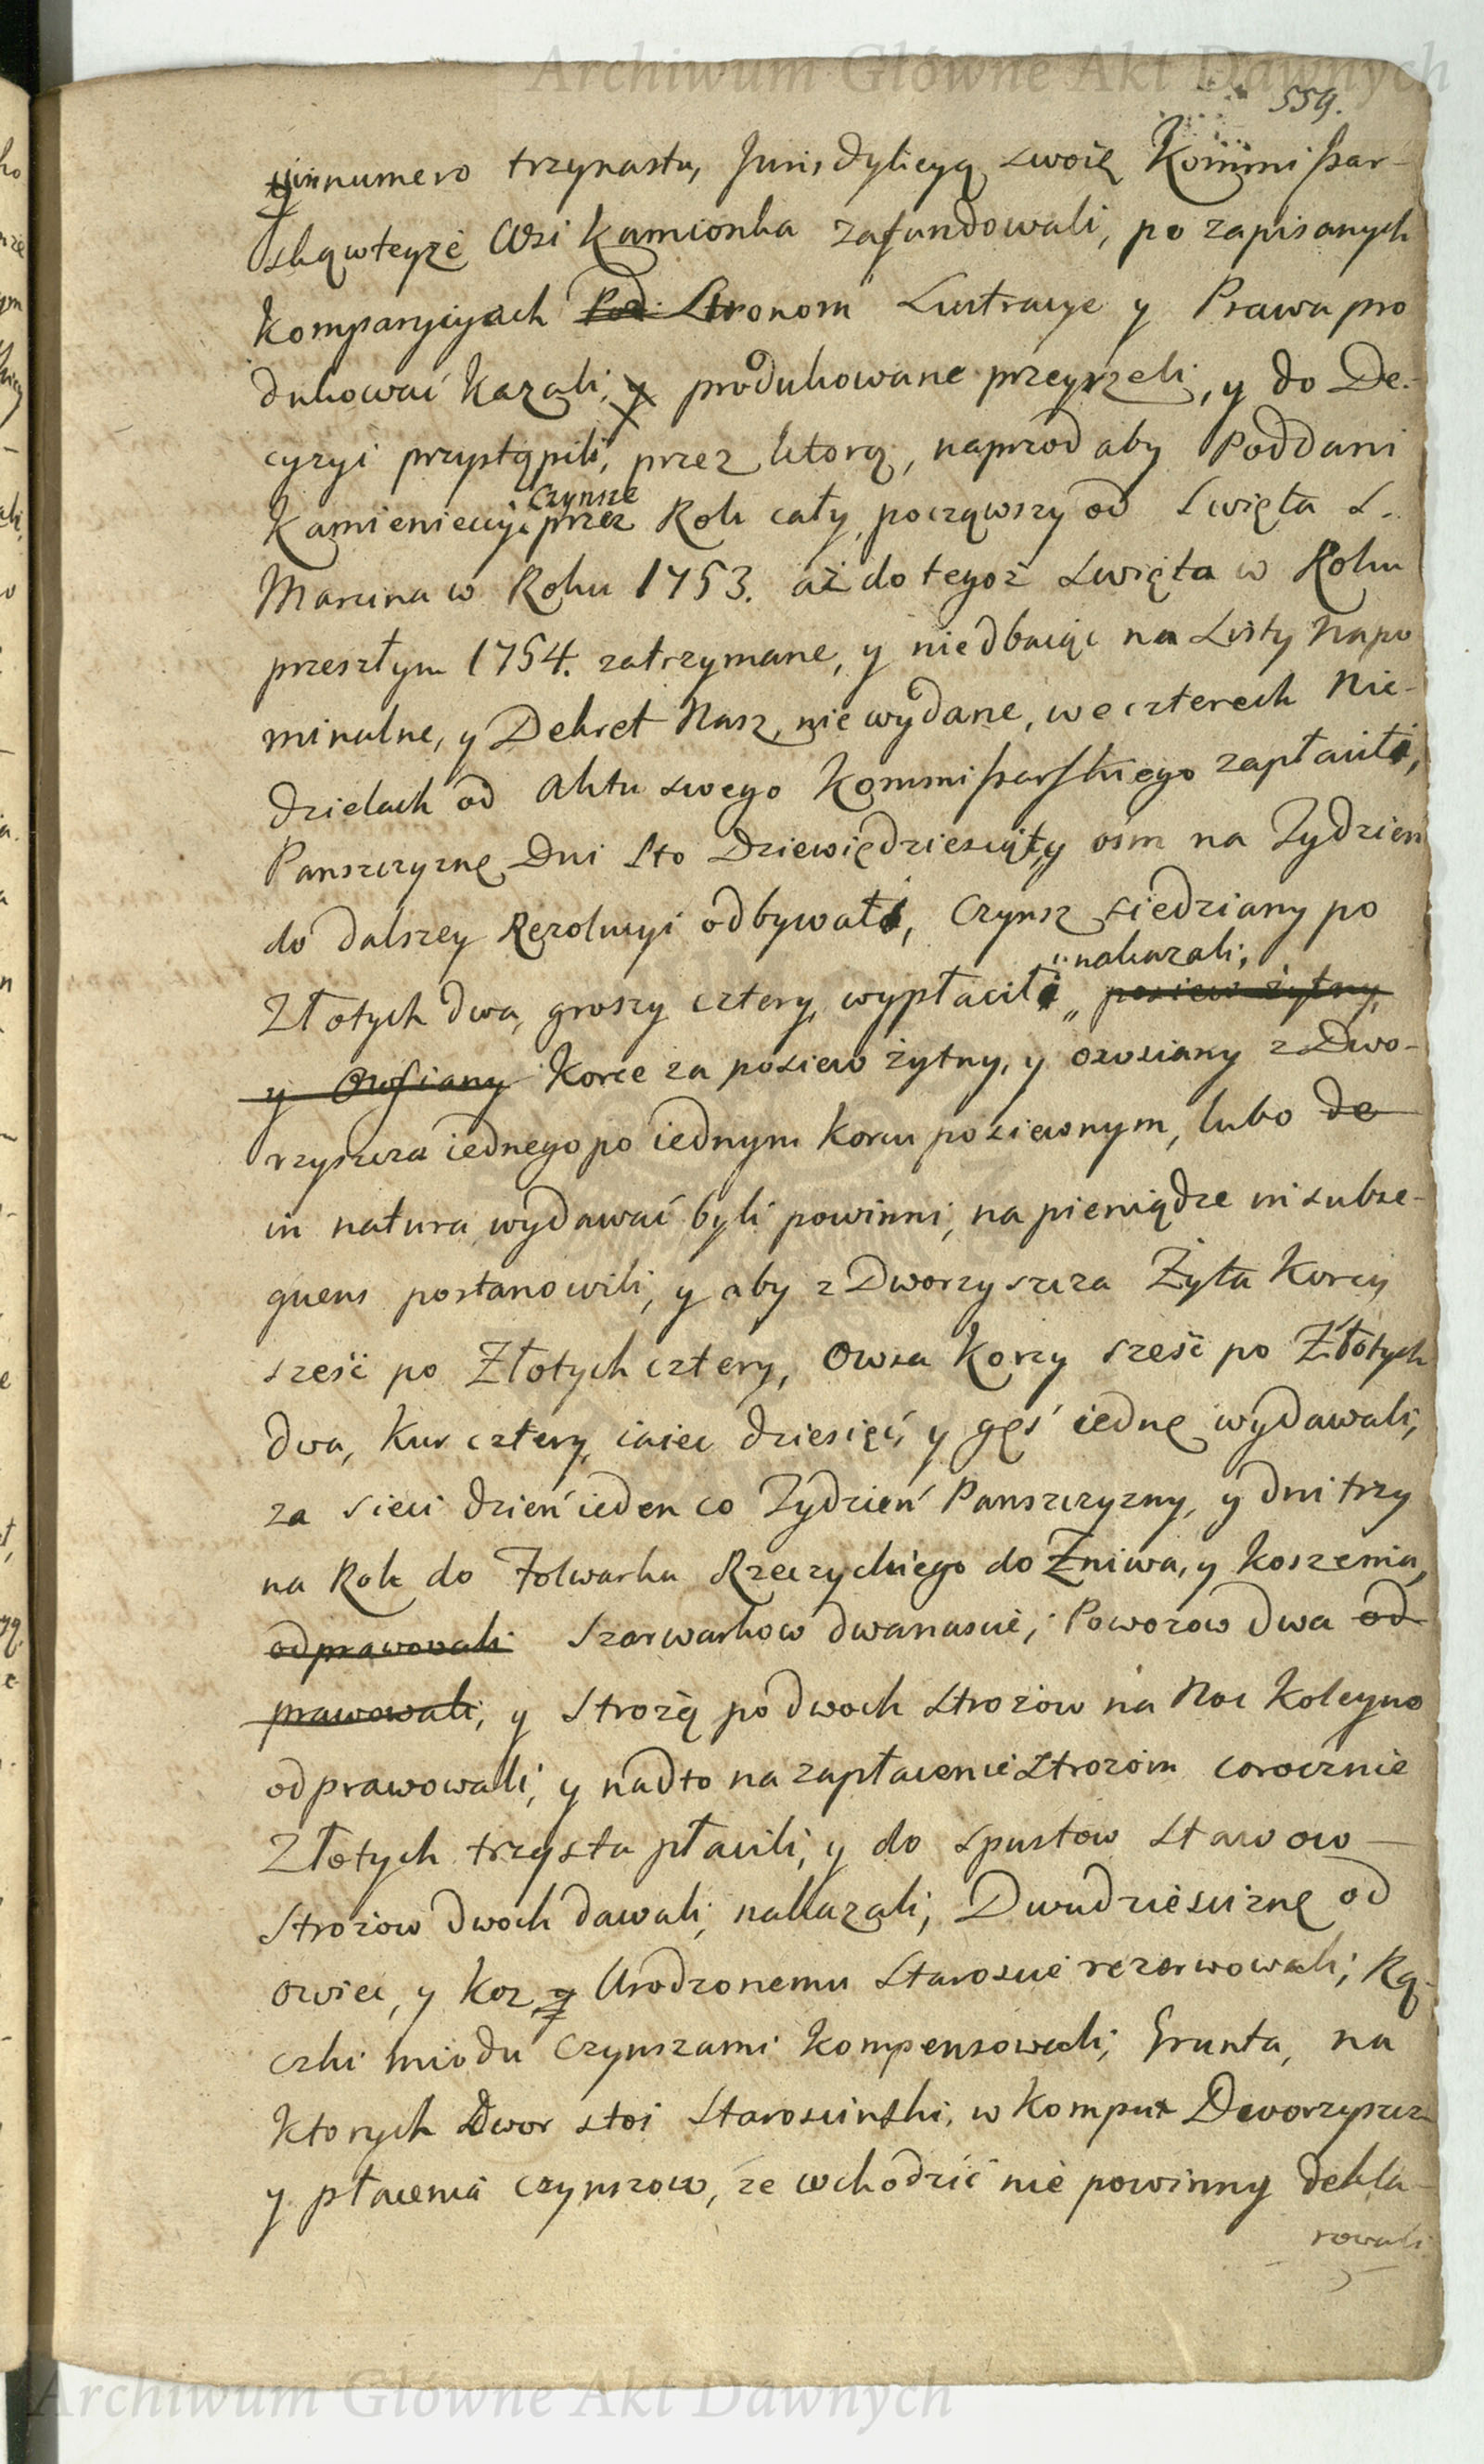 Archiwum Główne Akt Dawnych
559.
in numero trzynastu, Jurisdykcyą swoię Kommissar-
ską w teyże Wsi Kamionka zafundowali, po zapisanych
Komparycyach Pod. Stronom Lustracye y Prawa pro
dukować kazali, y produkowane przeyrzeli, y do De-
cyzyi przystąpili, przez ktorą, naprzod aby Poddani
czynsze
Kamienieccy przez Rok cały, począwszy od Swięta S.
Marcina w Roku 1753. aż do tegoż Swięta w Roku
przeszłym 1754. zatrzymane, y niedbaiąc na Listy Napo
minalne, y Dekret Nasz, nie wydane, we czterech Nie-
dzielach od Aktu swego Kommissarskiego zapłacili,
Panszczyznę Dni sto Dziewiędziesiąt y osm na Tydzien
do dalszey Rezolucyi odbywali, Czynsz siedziany po
nakazali,
Złotych dwa, groszy cztery, wypłacili posiew żytny,
y Owsiany Korce za posiew żytny, y owsiany z Dwo-
rzyszcza iednego po iednym Korcu posiewnym, lubo de
in natura wydawać byli powinni, na pieniądze in subse-
quens postanowili, y aby z Dworzyszcza Żyta Korcy
sześć po Złotych cztery, Owsa Korcy sześć po Złotych
dwa, Kur cztery, iaiec dziesięć, y gęś iednę wydawali,
za sieci dzień ieden co Tydzień Panszczyzny, y dni trzy
na Rok do Folwarku Rzeczyckiego do Żniwa, y koszenia,
odprawowali Szarwarkow dwanascie, Powozow dwa od
prawowali, y Strożą po dwoch Strożow na Noc koleyno
odprawowali, y nadto na zapłacenie Strożom corocznie
Złotych trzysta płacili, y do spustow Stawow –
Strożow dwoch dawali, nakazali, Dwudziesciznę od
owiec, y koz y Urodzonemu Staroscie rezerwowali, Rą-
czki miodu czynszami kompensowali, Grunta, na
ktorych Dwor stoi Starosciński, w komput Dworzyszcz
y płacenia czynszow, że wchodzić nie powinny dekla-
rowali
Archiwum Główne Akt Dawnych